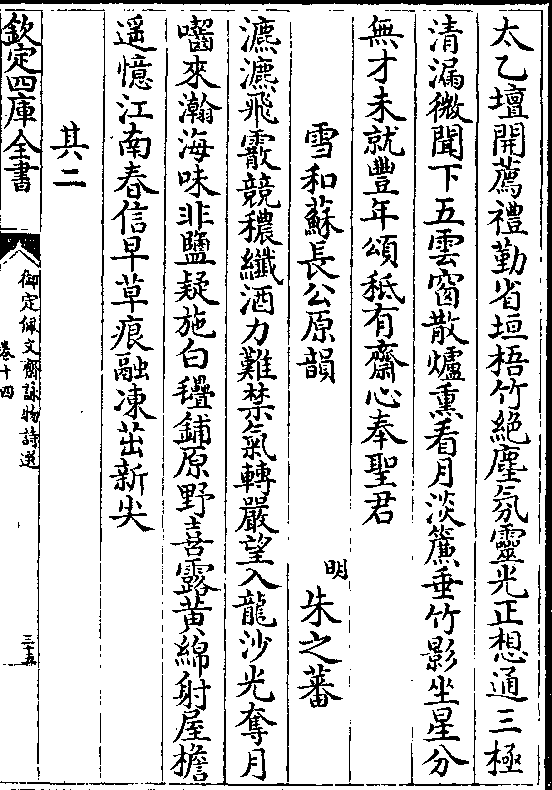 太乙壇開薦禮勤省垣梧竹絶塵氛靈光正想通三極
清漏微聞下五雲窗散爐熏看月淡簾垂竹影坐星分
無才未就豐年頌秪有齋心奉聖君
雪和蘇長公原韻
明 朱之蕃
漉漉飛霰競穠纖酒力難禁氣轉嚴望入龍沙光奪月
嚙來瀚海味非鹽疑施白㲲鋪原野喜露黄綿射屋檐
遥憶江南春信早草痕融凍茁新尖
其二
欽定四庫全書
御定佩文齋詠物詩選
卷十四
三十五